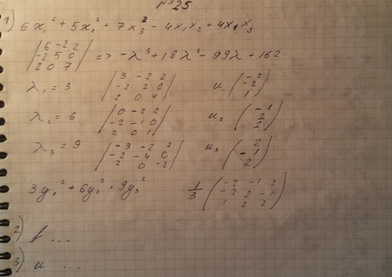 №25
1) 6x₁² + 5x₂² + 7x₃² - 4x₁x₂ + 4x₁x₃
|6 -2 2; -2 5 0; 2 0 7| => -λ³ + 18λ² - 99λ + 162
λ₁ = 3 |3 -2 2; -2 2 0; 2 0 4| u₁ (-2; -2; 1)
λ₂ = 6 |0 -2 2; -2 -1 0; 2 0 1| u₂ (-1; 2; 2)
λ₃ = 9 |-3 -2 2; -2 -4 0; 2 0 -2| u₃
3y₁² + 6y₂² + 9y₃² 1/3
2)
3)